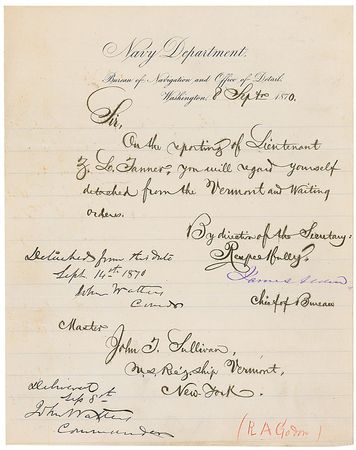 Navy Department.
Bureau of Navigation and Office of Detail.
Washington, 8 Septbr 1870.
Sir,
On the reporting of Lieutenant
Z. L. Tanner, you will regard yourself
detached from the Vermont and Waiting
orders.
By direction of the Secretary:
Respectfully,
James Alden
Chief of Bureau
Detached from this date
Sept. 14th 1870
John Watters
Comdr
Master
John T. Sullivan,
U.S. Rec'g. ship Vermont,
New-York.
Delivered
Sep 8th
John Watters
Commander
(R A Godon)